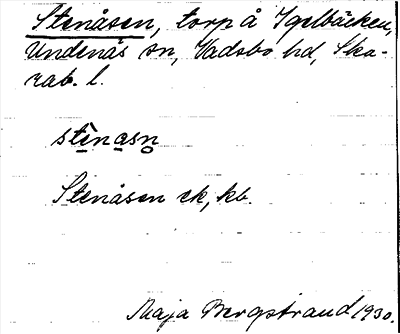 Stenåsen, torp å Igelbäcken,
Undenäs sn, Vadsbo hd, Ska-
rab. l.
stènasn̥
Stenåsen ek, kb.
Maja Bergstrand 1930.